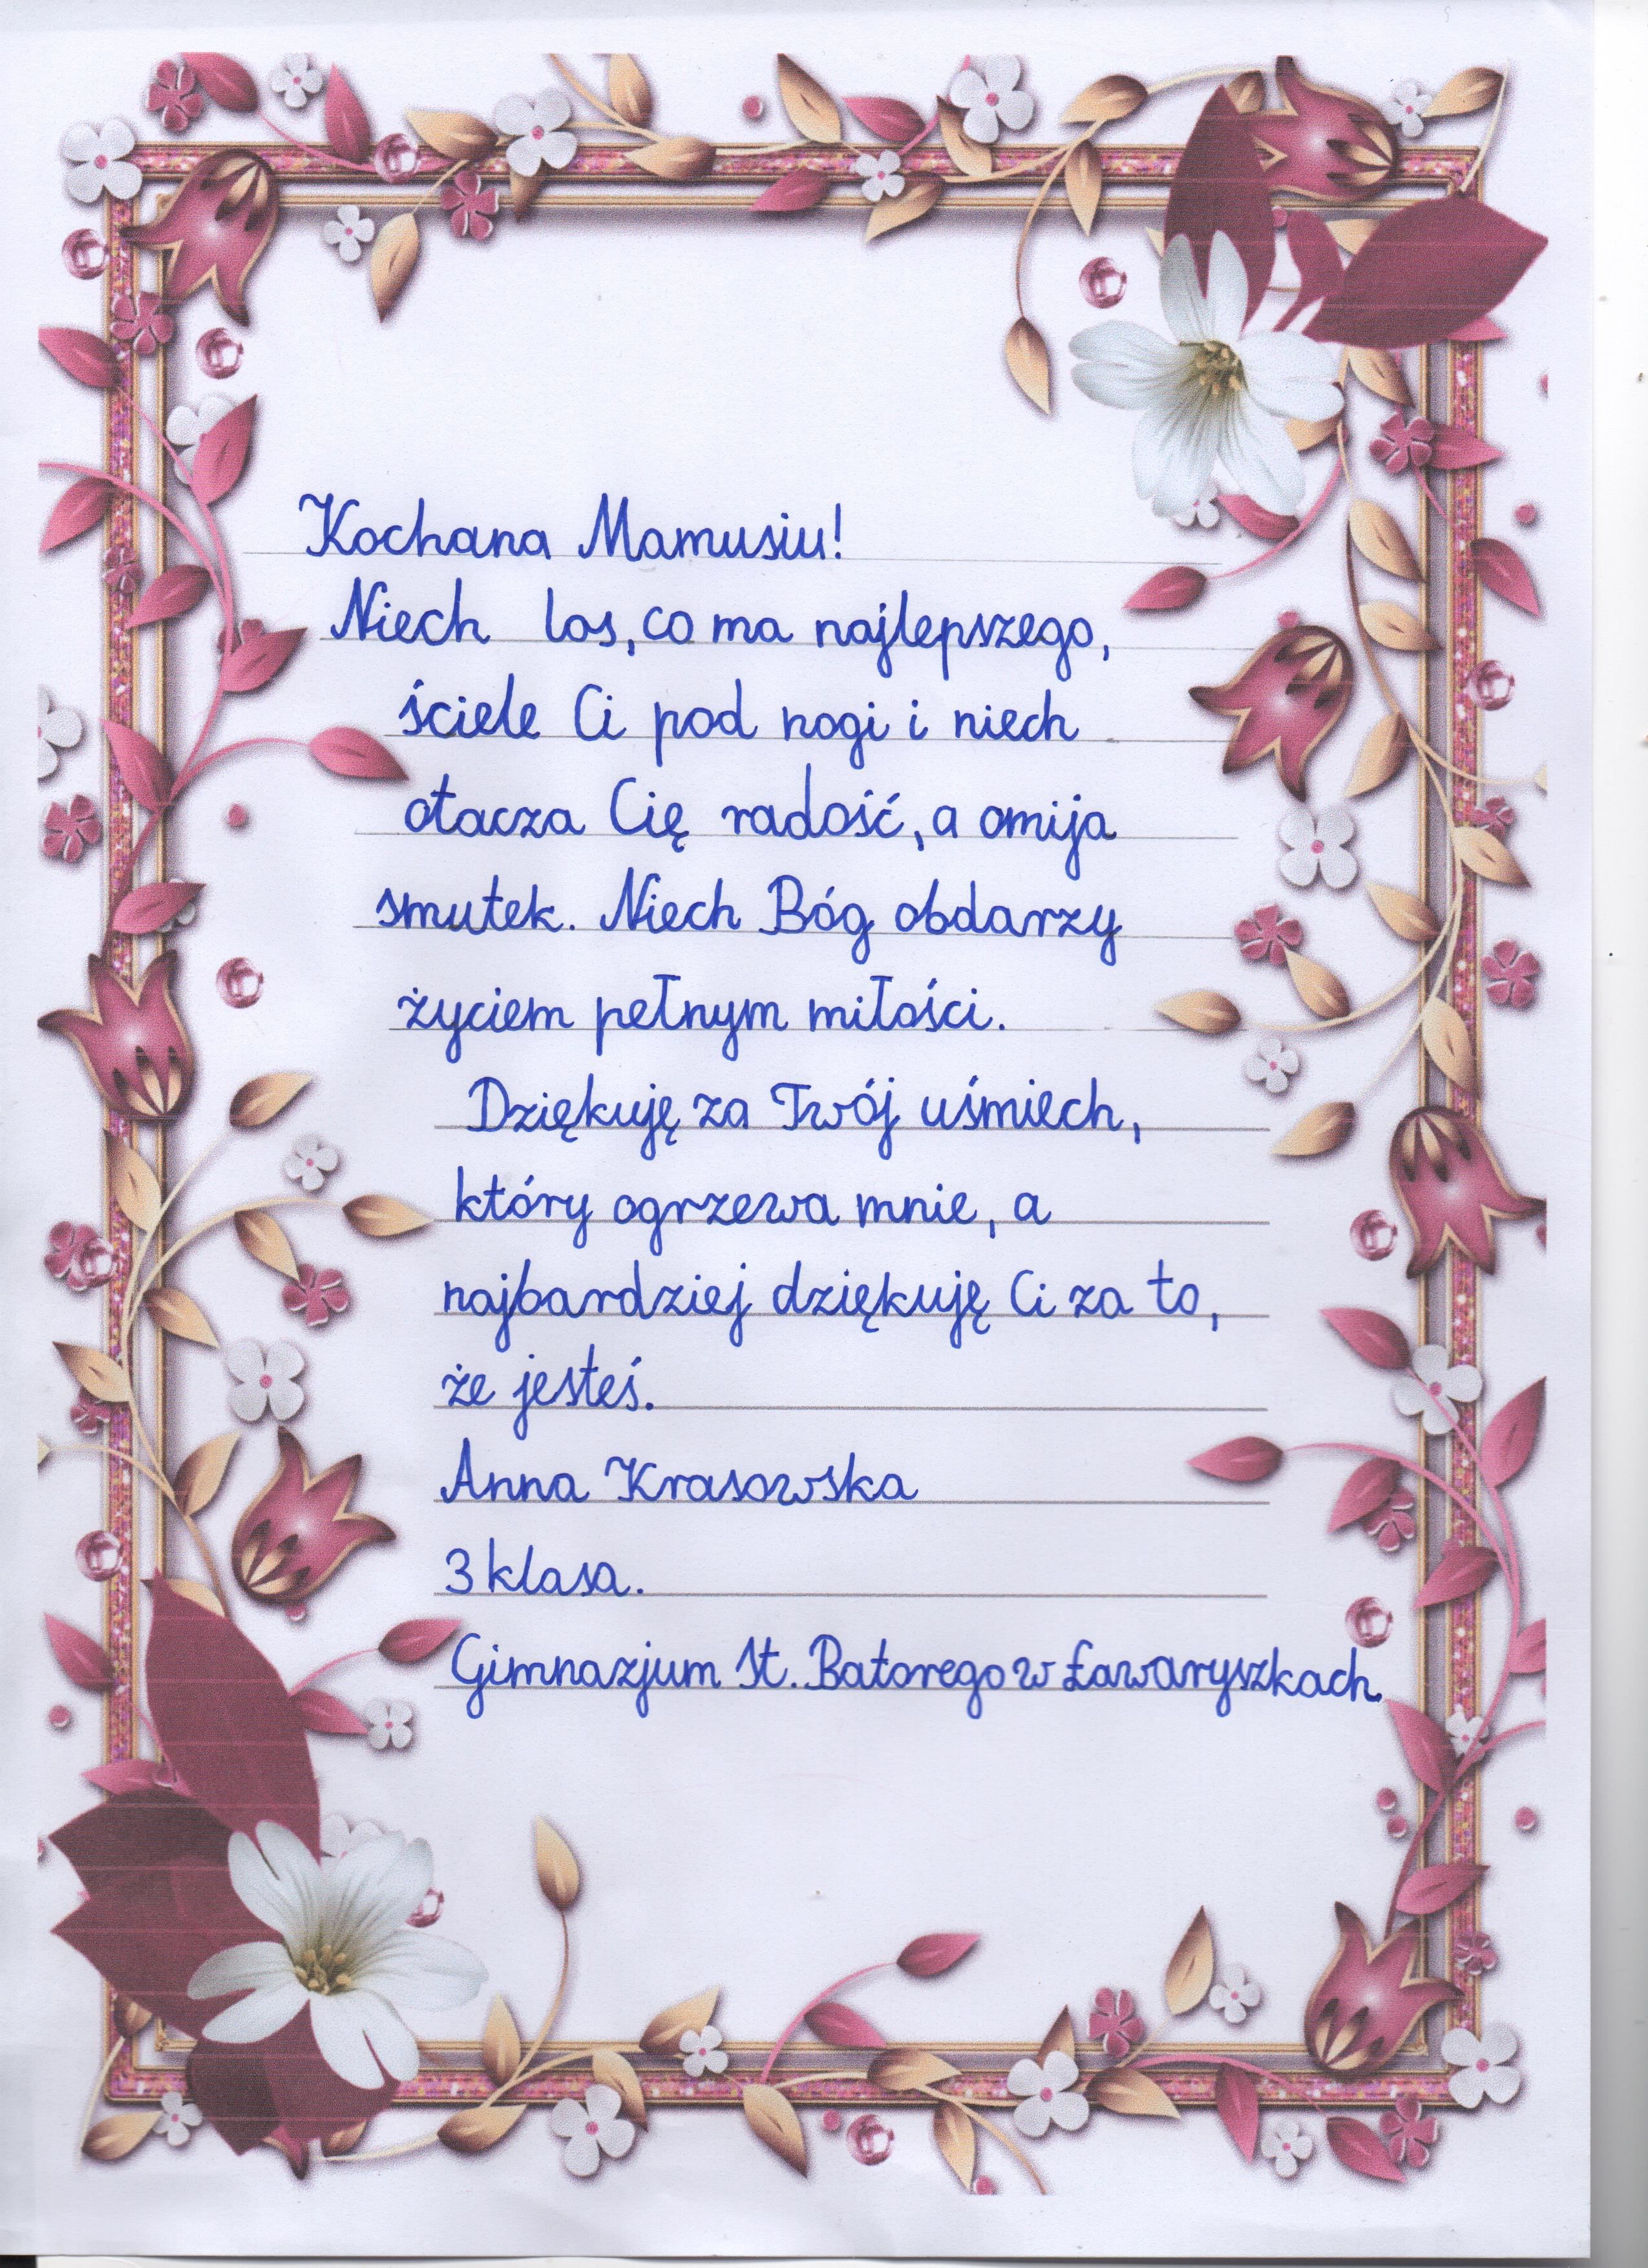 Kochana Mamusiu!
Niech los, co ma najlepszego,
ściele Ci pod nogi i niech
otacza Cię radość, a omija
smutek. Niech Bóg obdarzy
życiem pełnym miłości.
Dziękuję za Twój uśmiech,
który ogrzewa mnie, a
najbardziej dziękuję Ci za to,
że jesteś.
Anna Krasowska
3 klasa.
Gimnazjum St. Batorego w Ławaryszkach.